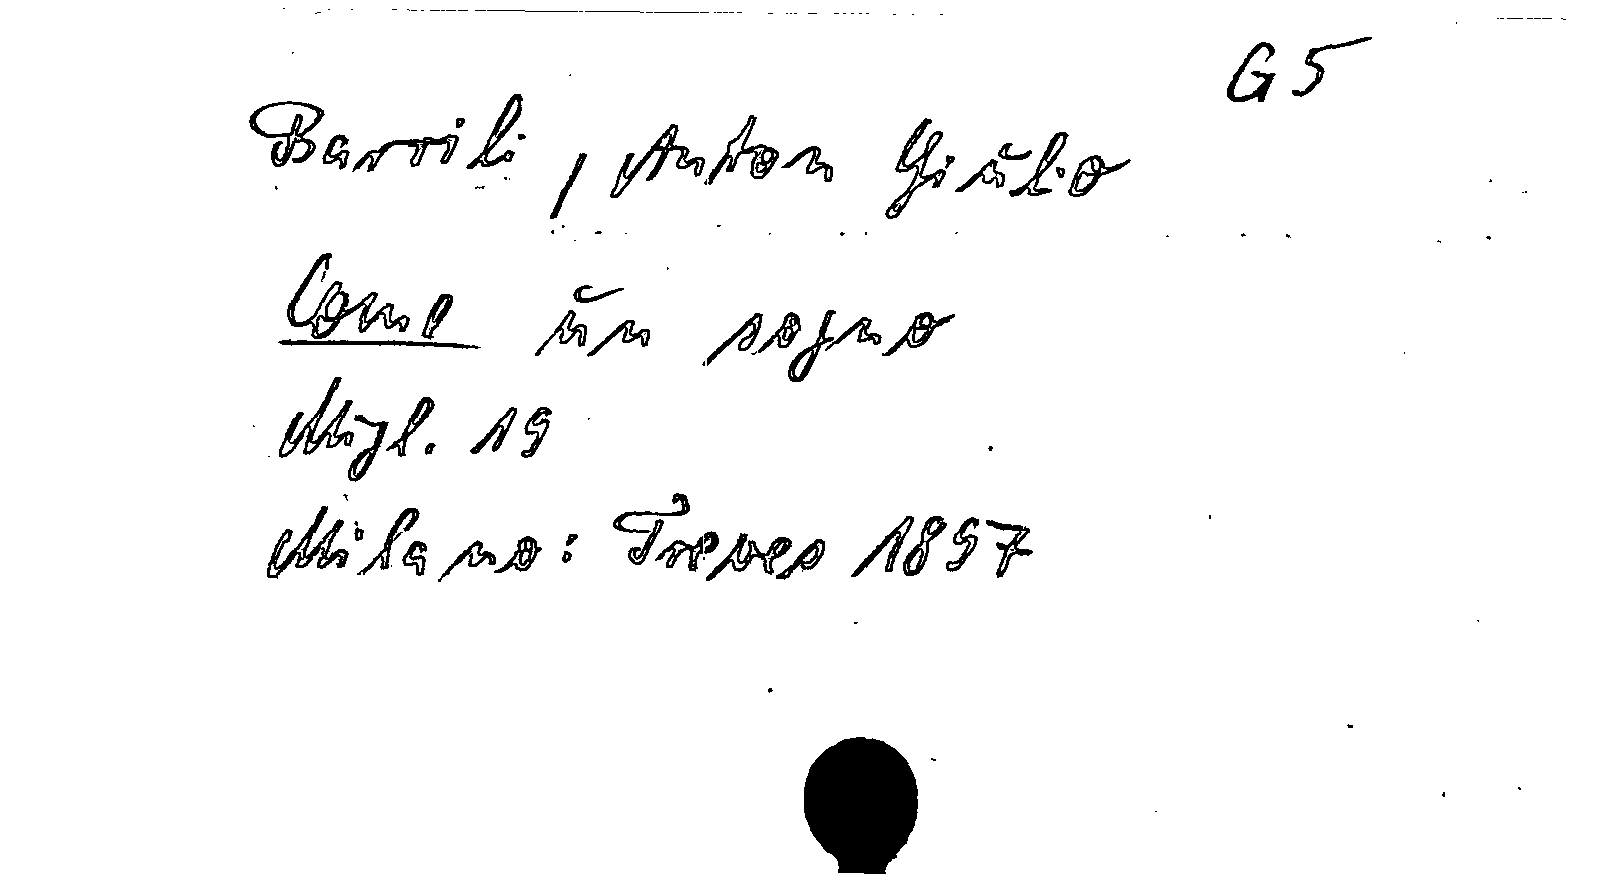 G 5
Barrili, Anton Giulio
Come un sogno
Migl. 19
Milano: Treves 1897